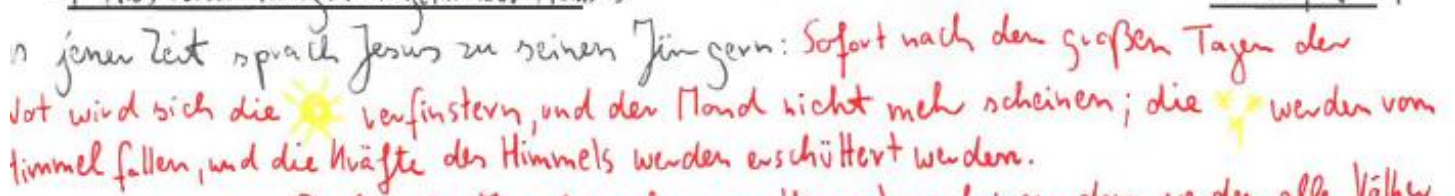 jener Zeit sprach Jesus zu seinen Jüngern: Sofort nach den großen Tagen der
Not wird sich die verfinstern, und der Mond nicht mehr scheinen; die werden vom
Himmel fallen, und die Kräfte des Himmels werden erschüttert werden.
werden alle Völker